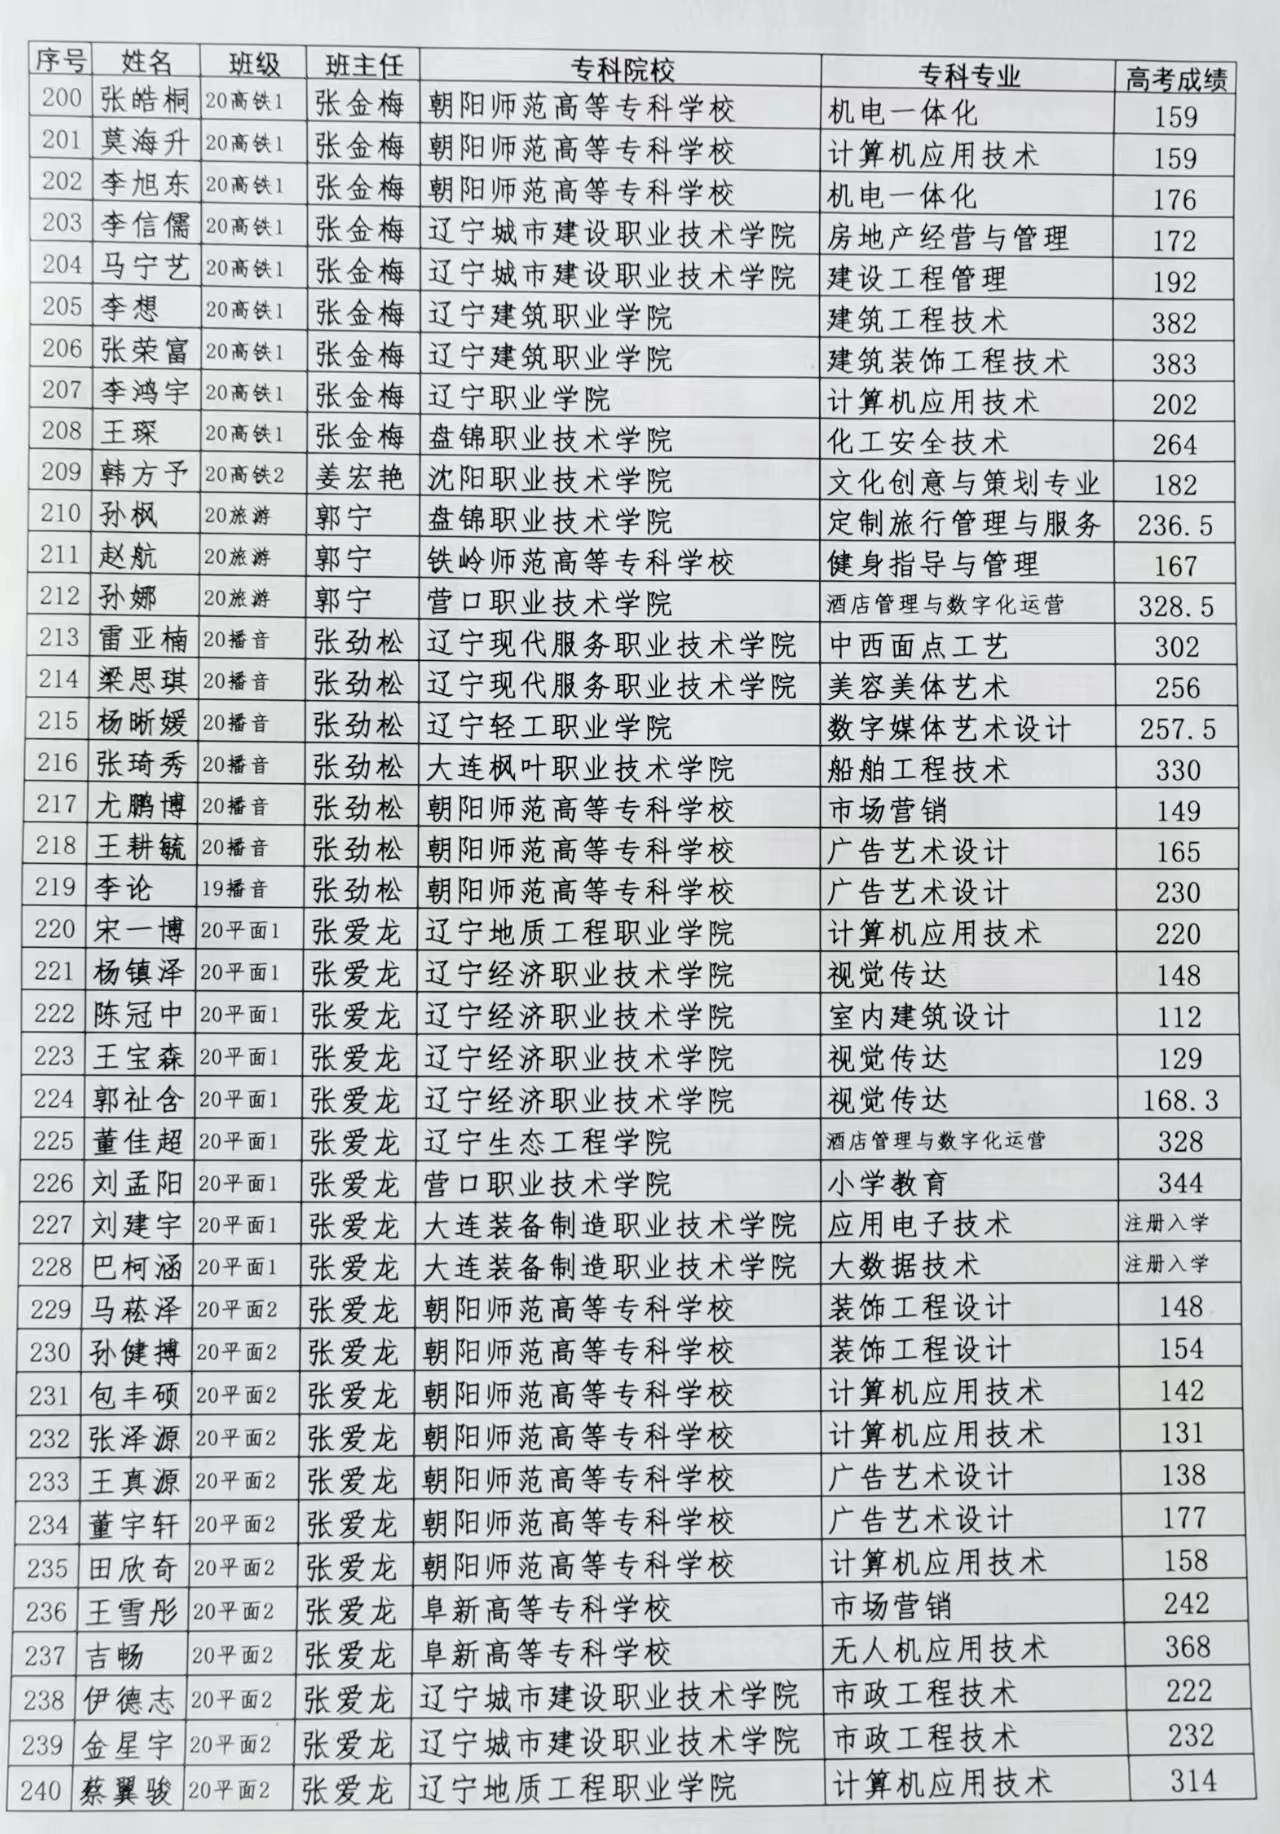 序号 姓名 班级 班主任 专科院校 专科专业 高考成绩
200 张皓桐 20高铁1 张金梅 朝阳师范高等专科学校 机电一体化 159
201 莫海升 20高铁1 张金梅 朝阳师范高等专科学校 计算机应用技术 159
202 李旭东 20高铁1 张金梅 朝阳师范高等专科学校 机电一体化 176
203 李信儒 20高铁1 张金梅 辽宁城市建设职业技术学院 房地产经营与管理 172
204 马宁艺 20高铁1 张金梅 辽宁城市建设职业技术学院 建设工程管理 192
205 李想 20高铁1 张金梅 辽宁建筑职业学院 建筑工程技术 382
206 张荣富 20高铁1 张金梅 辽宁建筑职业学院 建筑装饰工程技术 383
207 李鸿宇 20高铁1 张金梅 辽宁职业学院 计算机应用技术 202
208 王琛 20高铁1 张金梅 盘锦职业技术学院 化工安全技术 264
209 韩方予 20高铁2 姜宏艳 沈阳职业技术学院 文化创意与策划专业 182
210 孙枫 20旅游 郭宁 盘锦职业技术学院 定制旅行管理与服务 236.5
211 赵航 20旅游 郭宁 铁岭师范高等专科学校 健身指导与管理 167
212 孙娜 20旅游 郭宁 营口职业技术学院 酒店管理与数字化运营 328.5
213 雷亚楠 20播音 张劲松 辽宁现代服务职业技术学院 中西面点工艺 302
214 梁思琪 20播音 张劲松 辽宁现代服务职业技术学院 美容美体艺术 256
215 杨晰媛 20播音 张劲松 辽宁轻工职业学院 数字媒体艺术设计 257.5
216 张琦秀 20播音 张劲松 大连枫叶职业技术学院 船舶工程技术 330
217 尤鹏博 20播音 张劲松 朝阳师范高等专科学校 市场营销 149
218 王耕毓 20播音 张劲松 朝阳师范高等专科学校 广告艺术设计 165
219 李论 19播音 张劲松 朝阳师范高等专科学校 广告艺术设计 230
220 宋一博 20平面1 张爱龙 辽宁地质工程职业学院 计算机应用技术 220
221 杨镇泽 20平面1 张爱龙 辽宁经济职业技术学院 视觉传达 148
222 陈冠中 20平面1 张爱龙 辽宁经济职业技术学院 室内建筑设计 112
223 王宝森 20平面1 张爱龙 辽宁经济职业技术学院 视觉传达 129
224 郭祉含 20平面1 张爱龙 辽宁经济职业技术学院 视觉传达 168.3
225 董佳超 20平面1 张爱龙 辽宁生态工程学院 酒店管理与数字化运营 328
226 刘孟阳 20平面1 张爱龙 营口职业技术学院 小学教育 344
227 刘建宇 20平面1 张爱龙 大连装备制造职业技术学院 应用电子技术 注册入学
228 巴柯涵 20平面1 张爱龙 大连装备制造职业技术学院 大数据技术 注册入学
229 马菘泽 20平面2 张爱龙 朝阳师范高等专科学校 装饰工程设计 148
230 孙健搏 20平面2 张爱龙 朝阳师范高等专科学校 装饰工程设计 154
231 包丰硕 20平面2 张爱龙 朝阳师范高等专科学校 计算机应用技术 142
232 张泽源 20平面2 张爱龙 朝阳师范高等专科学校 计算机应用技术 131
233 王真源 20平面2 张爱龙 朝阳师范高等专科学校 广告艺术设计 138
234 董宇轩 20平面2 张爱龙 朝阳师范高等专科学校 广告艺术设计 177
235 田欣奇 20平面2 张爱龙 朝阳师范高等专科学校 计算机应用技术 158
236 王雪彤 20平面2 张爱龙 阜新高等专科学校 市场营销 242
237 吉畅 20平面2 张爱龙 阜新高等专科学校 无人机应用技术 368
238 伊德志 20平面2 张爱龙 辽宁城市建设职业技术学院 市政工程技术 222
239 金星宇 20平面2 张爱龙 辽宁城市建设职业技术学院 市政工程技术 232
240 蔡翼骏 20平面2 张爱龙 辽宁地质工程职业学院 计算机应用技术 314